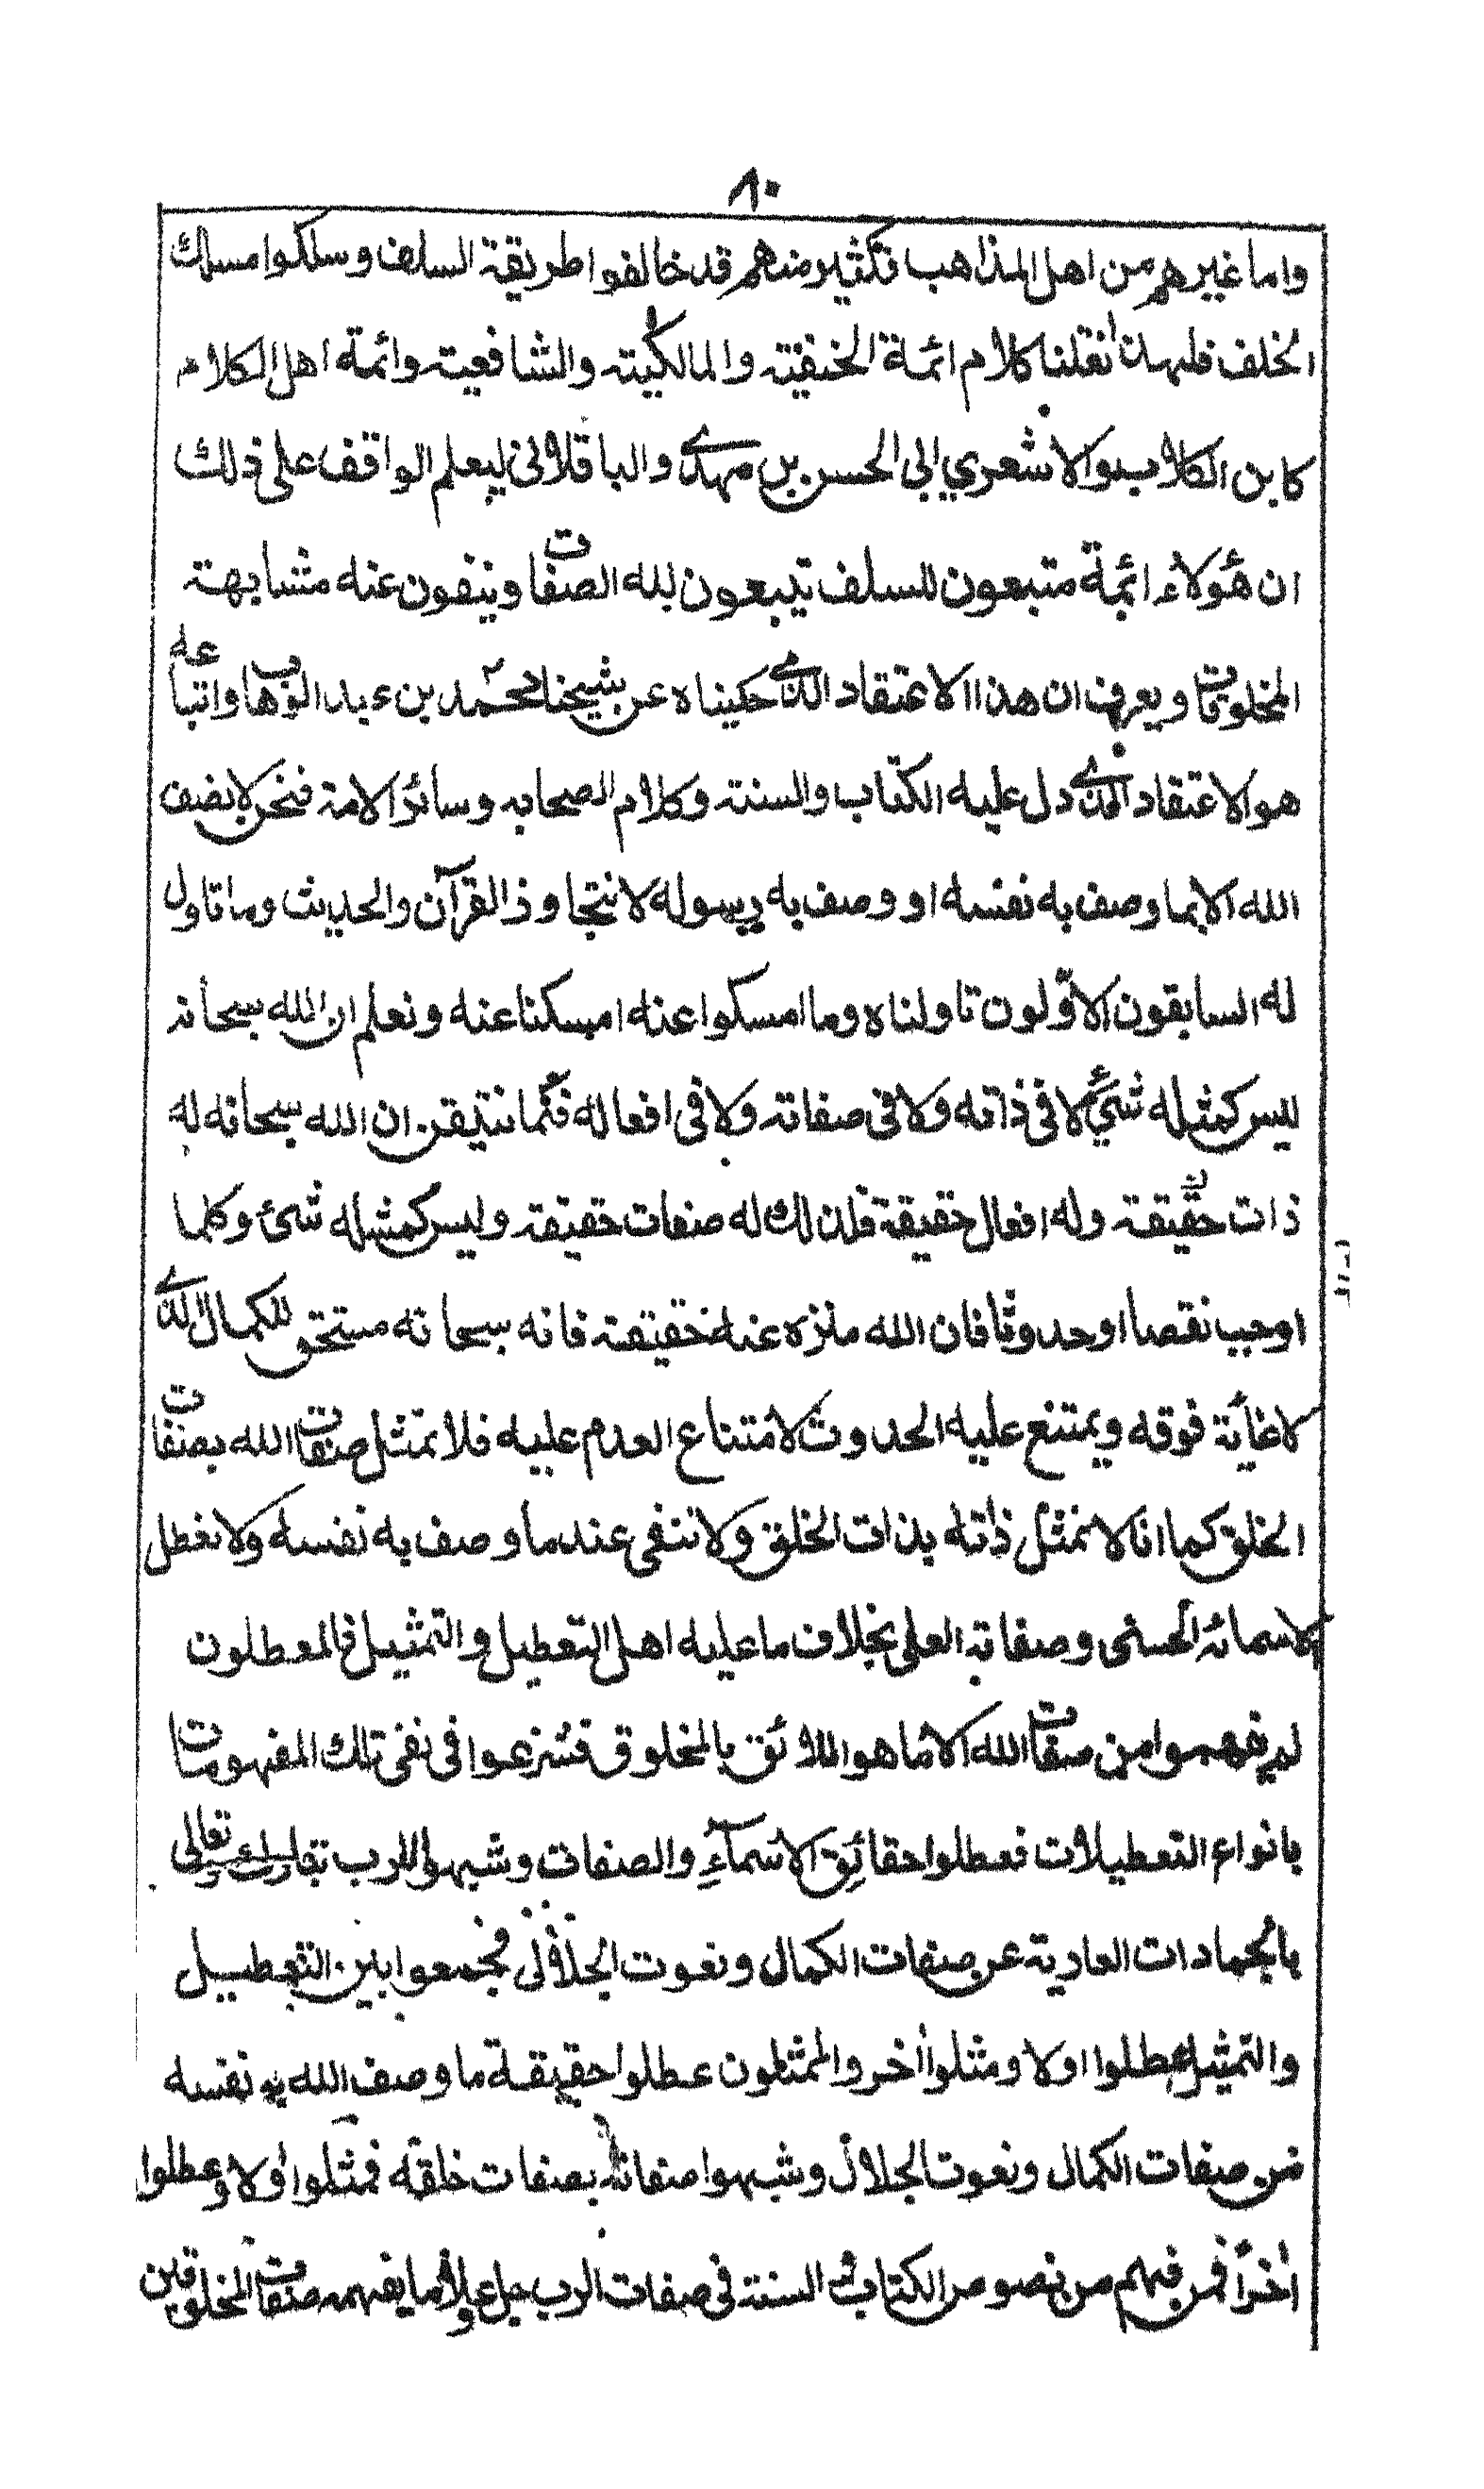 ٨٠
واما غيرهم من اهل المذاهب فكثير منهم قد خالفوا طريقة السلف وسلكوا مسلك
الخلف فلهذا نقلنا كلام ائمة الحنفية والمالكية والشافعية وائمة اهل الكلام
كابن الكلاب والاشعري ابي الحسن بن مهدي والباقلاني ليعلم الواقف على ذلك
ان هؤلاء ائمة متبعون للسلف يثبتون لله الصفات وينفون عنه مشابهة
المخلوقات ويعرف ان هذا الاعتقاد الذي حكيناه عن شيخنا محمد بن عبد الوهاب واتباعه
هو الاعتقاد الذي دل عليه الكتاب والسنة وكلام الصحابه وسائر الامة فنحن لا نصف
الله الا بما وصف به نفسه او وصف به رسوله لا نتجاوز القرآن والحديث وما تاول
له السابقون الاولون تاولناه وما امسكوا عنه امسكنا عنه ونعلم ان الله سبحانه
ليس كمثله شيء لا في ذاته ولا في صفاته ولا في افعاله فكما نتيقن ان الله سبحانه له
ذات حقيقة وله افعال حقيقة فكذلك له صفات حقيقة وليس كمثله شئ وكلما
اوجب نقصا او حدوثا فان الله منزه عنه حقيقة فانه سبحانه مستحق للكمال الذي
لا غاية فوقه ويمتنع عليه الحدوث لامتناع العدم عليه فلا نمثل صفات الله بصفات
الخلق كما انا لا نمثل ذاته بذات الخلق ولا ننفى عنه ما وصف به نفسه ولا نعطل
لاسمائه الحسنى وصفاته العلى بخلاف ما عليه اهل التعطيل والتمثيل فالمعطلون
لم يفهموا من صفات الله الا ما هو اللائق بالمخلوق فشرعوا في نفى تلك المفهومات
بانواع التعطيلات فعطلوا حقائق الاسمآء والصفات وشبهوا الرب تبارك وتعالى
بالجمادات العارية عن صفات الكمال ونعوت الجلال فجمعوا بين التعطيل
والتمثيل عطلوا اولا ومثلوا أخر والممثلون عطلوا حقيقة ما وصف الله به نفسه
من صفات الكمال ونعوت الجلال وشبهوا صفاته بصفات خلقه فمثلوا اولا وعطلوا
أخرا فمن فهم من نصوص الكتاب السنة في صفات الرب جل وعلا ما يفهمه صفات المخلوقين